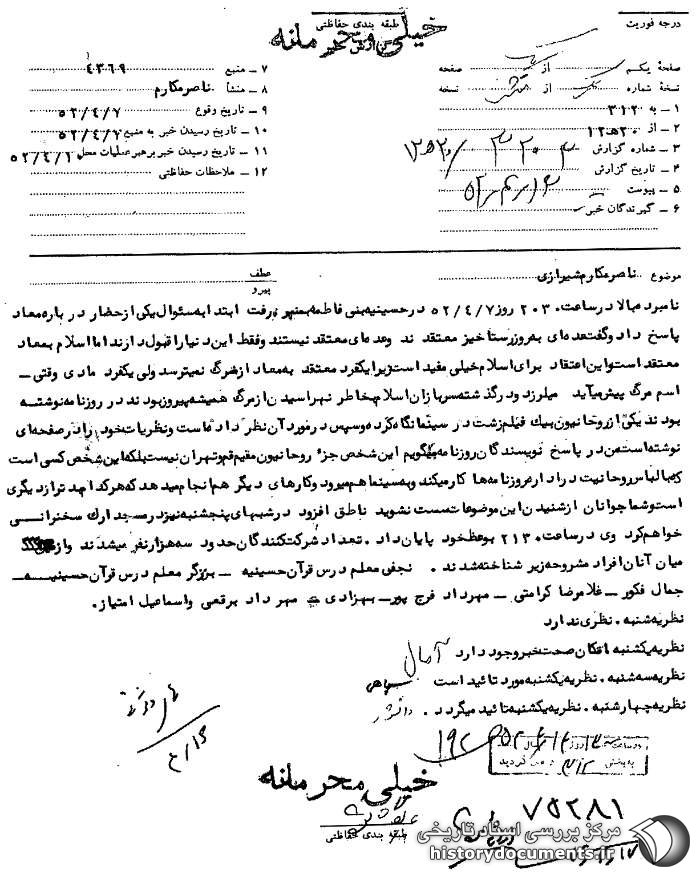 درجه فوریت
طبقه بندی حفاظتی
خیلی محرمانه
گزارش
صفحهٔ یکم از صفحه
نسخهٔ شماره از نسخه
۱ - به ۳۱۲
۲ - از ۲۰ ه ۱۲
۳ - شماره گزارش
۴ - تاریخ گزارش
۵ - پیوست
۶ - گیرندگان خبر
۷ - منبع ۴۳۶۹
۸ - منشأ ناصر مکارم
۹ - تاریخ وقوع ۵۲/۴/۷
۱۰ - تاریخ رسیدن خبر به منبع ۵۲/۴/۷
۱۱ - تاریخ رسیدن خبر برهبر عملیات محل
۱۲ - ملاحظات حفاظتی
موضوع ناصر مکارم شیرازی
عطف
پیرو
نامبرده بالا در ساعت ۲۰۳۰ روز ۵۲/۴/۷ در حسینیه بنی فاطمه بمنبر رفت ابتدا به سئوال یکی از حضار در باره معاد
پاسخ داد و گفت عده‌ای به روز رستاخیز معتقد ند وعده‌ای معتقد نیستند و فقط این دنیا را قبول دارند اما اسلام بمعاد
معتقد است و این اعتقاد برای اسلام خیلی مفید است زیرا یکفرد معتقد به معاد از مرگ نمیترسد ولی یکفرد مادی وقتی ـ
اسم مرگ پیش میآید میلرزد و در گذشته سربازان اسلام بخاطر نهراسیدن از مرگ همیشه پیروز بودند در روزنامه نوشته
بودند یکی از روحانیون بیک فیلم زشت در سینما نگاه کرده و سپس در مورد آن نظر داده است و نظریات خود را در صفحه‌ای
نوشته است من در پاسخ نویسندگان روزنامه میگویم این شخص جزء روحانیون مقیم قم و تهران نیست بلکه این شخص کسی است
که با لباس روحانیت در اداره روزنامه ها کار میکند و به سینما هم میرود و کارهای دیگر هم انجام میدهد که هر کدام بدتر از دیگری
است و شما جوانان از شنیدن این موضوعات سست نشوید ناطق افزود در شبهای پنجشنبه نیز در مسجد ارک سخنرانی
خواهم کرد وی در ساعت ۲۱۳۰ بوعظ خود پایان داد . تعداد شرکت کنندگان حدود سه هزار نفر میشدند و از
میان آنان افراد مشروحه زیر شناخته شدند . نجفی معلم درس قرآن حسینیه ـ برزگر معلم درس قرآن حسینیه ـ
جمال فکور ـ غلامرضا کرامتی ـ مهرداد فرج پور ـ بهزادی مهرداد برقعی و اسماعیل امتیاز .
نظریه شنبه . نظری ندارد
نظریه یکشنبه امکان صحت خبر وجود دارد آرمان
نظریه سه شنبه . نظریه یکشنبه مورد تائید است سپاهی
نظریه چهارشنبه . نظریه یکشنبه تائید میگردد . دانشور
در ساعت روز سال
به بخش ۳۱۲ گردید
خیلی محرمانه
طبقه بندی حفاظتی
۷۵۲۸۱
مرکز بررسی اسناد تاریخی
historydocuments.ir